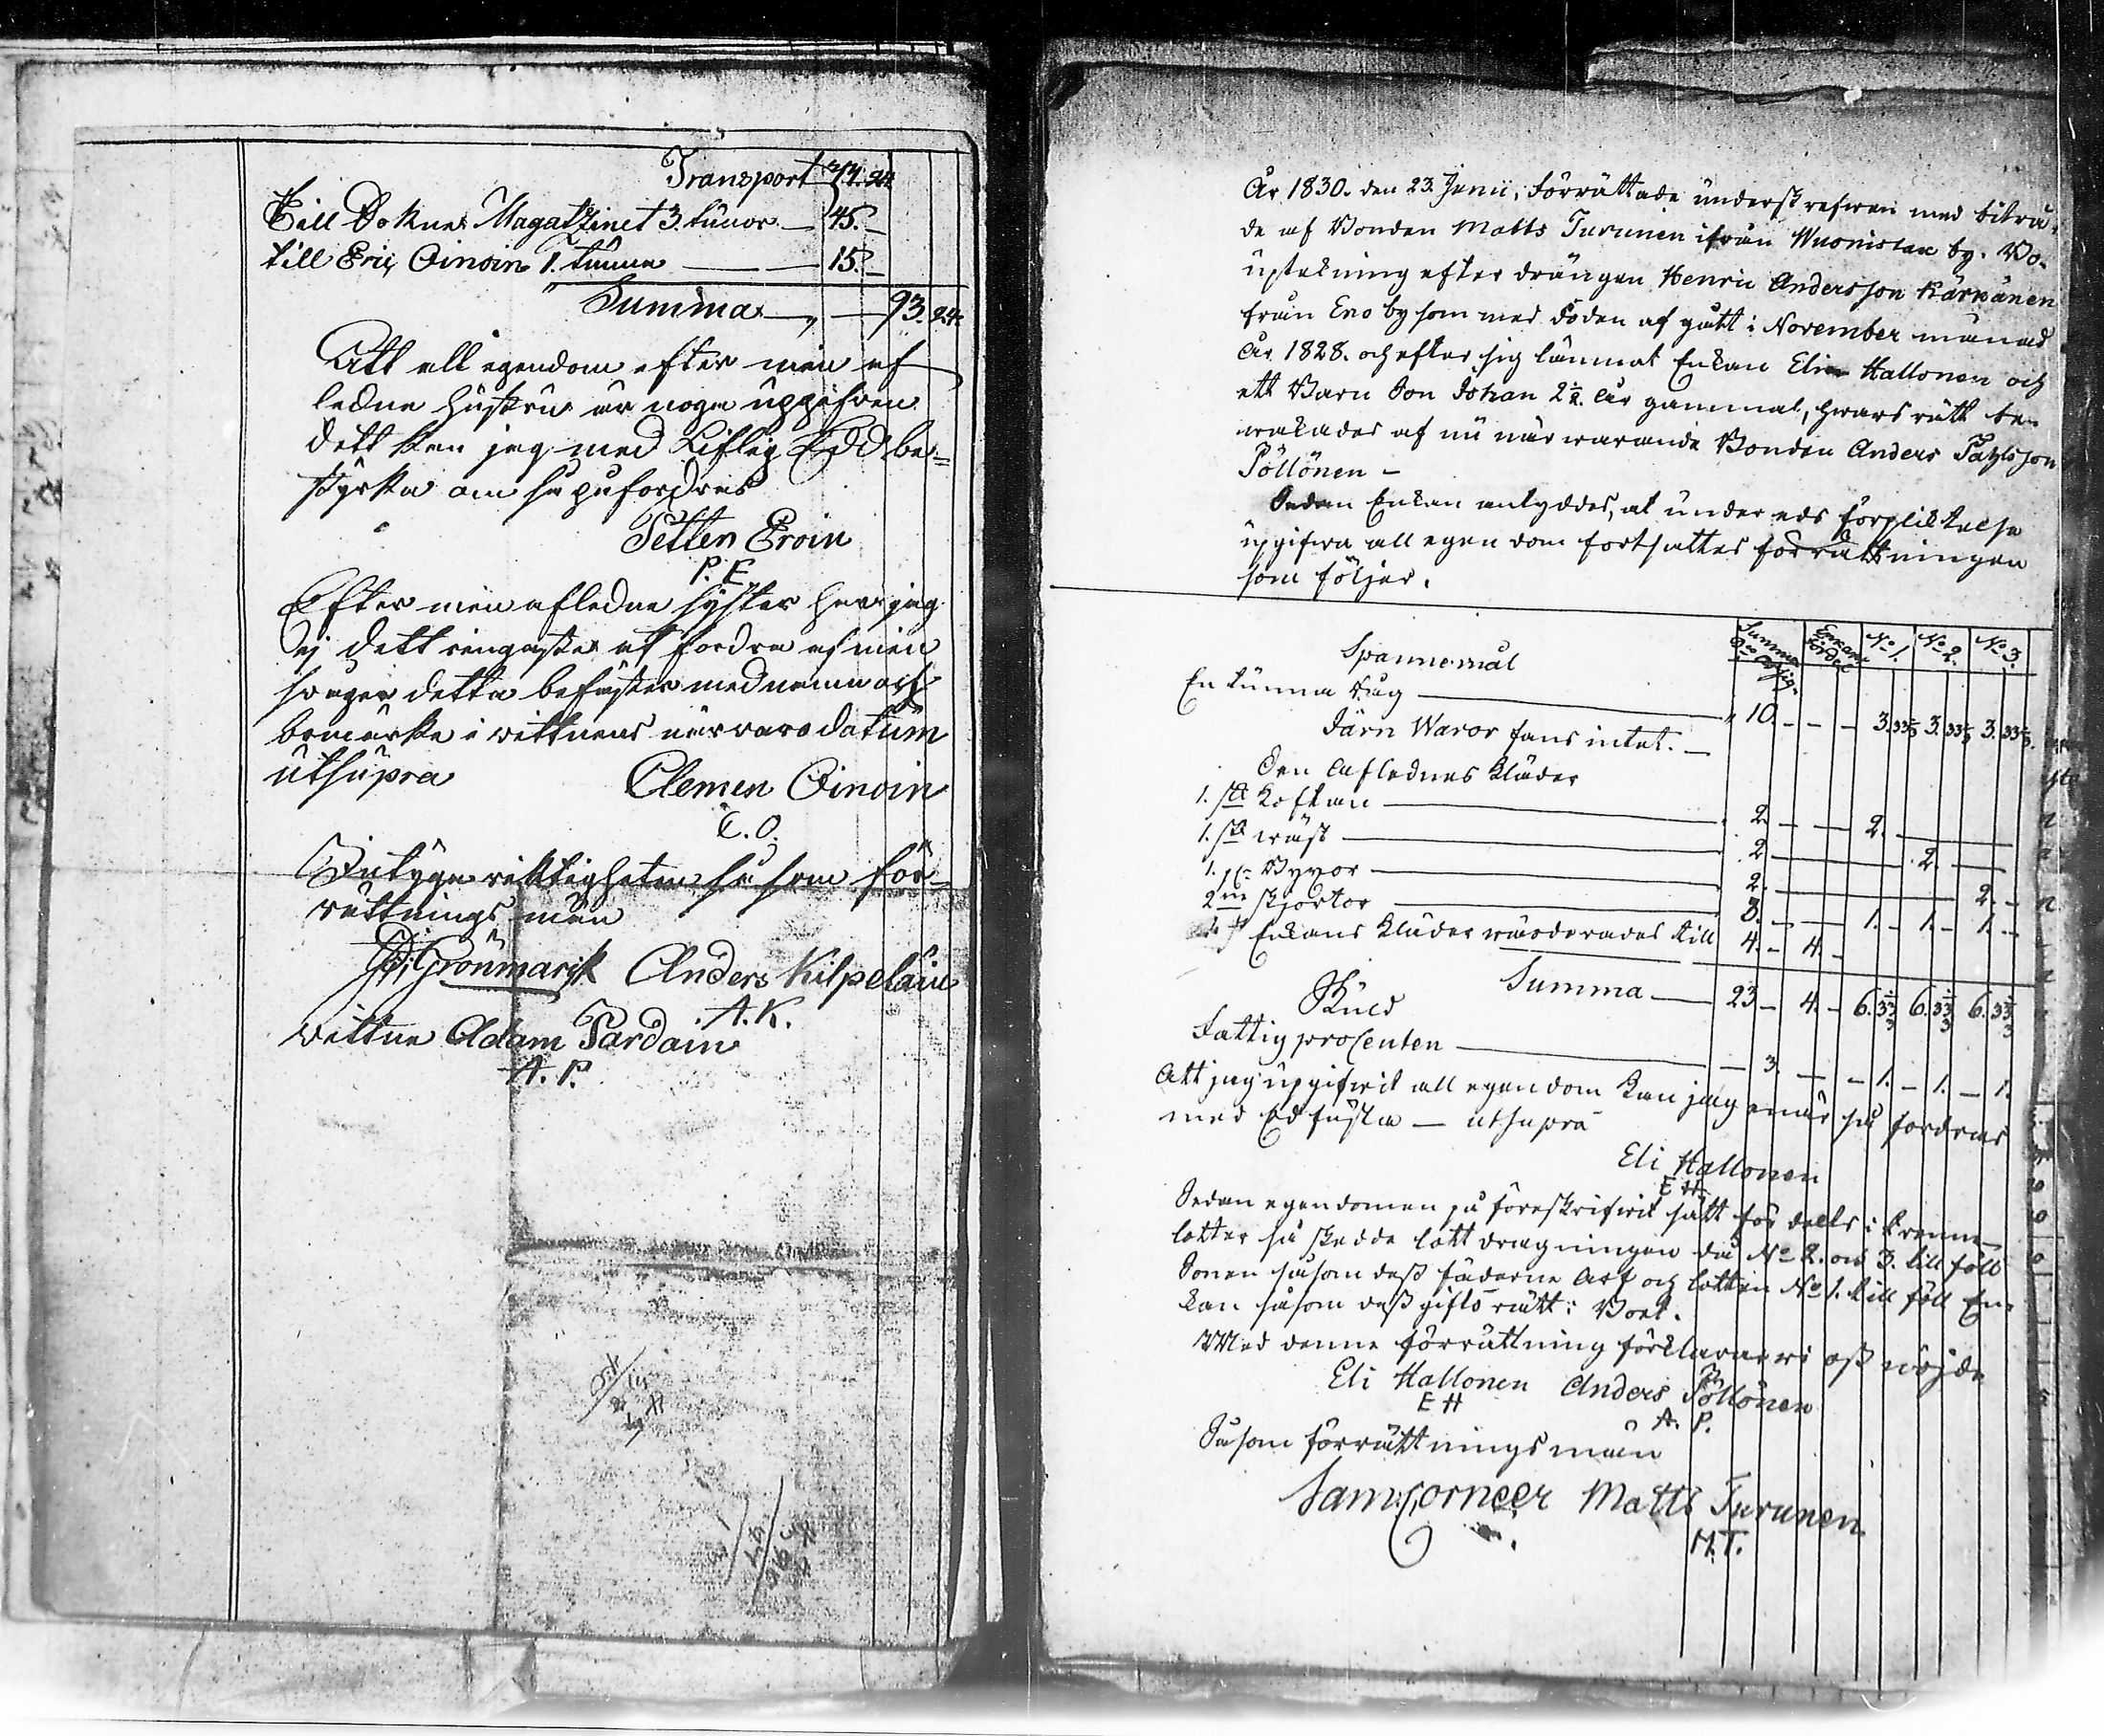 Transport 33. 24
Till Sokne Magatzinet 3. tunor — 45. —
till Eric Oinoin 1. tunna — 15. —
Summa — 93. 24.
Att all egendom efter min af
ledne hustru är noga uppgifven
dett kan jag med Liflig Edd be=
styrka om så påfordras
Petter Eroin
P. E.
Efter min afledne syster har jag
ej dett ringaste att fordra af min
svåger detta befäster med namn och
bomärke i vittnens närvaro datum
utsupra Clemen Oinoin
C. O.
Intyga riktigheten så som för=
rättnings män
Grönmarck Anders Kilpeläin
A. K.
vittne Adam Pardain
A. P.
År 1830. den 23. Junii, Förrättade underskrefven med biträ-
de af Bonden Matts Turunen ifrån Wuonislax by. Bo-
uptekning efter drängen Henric Andersson Kärkänen
från Eno by som med döden af gått i November månad
År 1828. och efter sig lämnat Enkan Elin Hallonen och
ett Barn Son Johan 2½. År gammal, hvars rätt be-
wakades af nu närwarande Bonden Anders Påhlsson
Pöllönen —
Sedan Enkan antyddes, at under eds förpliktelse
upgifwa all egen dom fortsattes förrättningen
som följer.
Spannemål Summa Enkans fördel No 1. No 2. No 3.
En tunna Råg — 10. — — — 3.33⅓ 3.33⅓ 3.33⅓.
Järn Waror fans intet. —
Den Aflednes kläder
1. st Koftan — 2. — — 2. —
1. st wäst — 2 — 2. —
1. pr Byxor — 2. — 2. —
2ne skjortor — 3. — — 1. — 1. — 1. —
Enkans kläder wärderades till 4. — 4. —
Summa — 23 — 4. — 6.33⅓ 6.33⅓ 6.33⅓
Skuld
Fattig procenten — — 3. — — 1. — 1. — 1.
Att jag upgifwit all egen dom kan jag enär så fordras
med Ed fästa — utsupra
Eli Hallonen
E H
Sedan egendomen på föreskrifwit sätt för delts i trenne
lotter så skedde lott dragningen då No 2. och 3. till föll
Sonen såsom dess fäderne Arf och lotten No 1. till föll En-
kan såsom dess giftorätt: Boet.
Med denne förrättning förklarar wi oss nöjde
Eli Hallonen Anders Pöllönen
E H A. P.
Såsom förrättnings män
Sam: Corneer Matts Turunen
M. T.